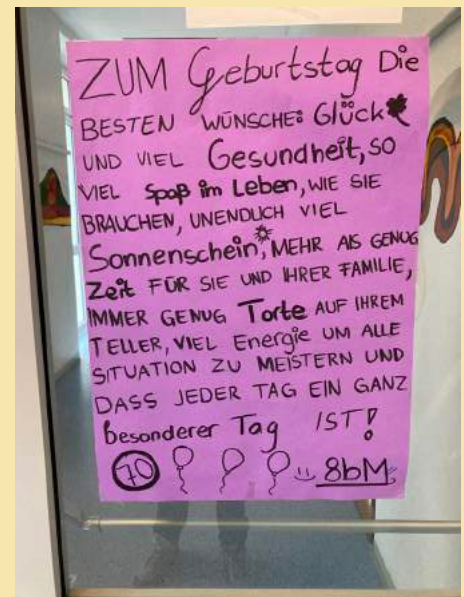 ZUM Geburtstag Die
BESTEN WÜNSCHE: Glück
UND VIEL Gesundheit, SO
VIEL Spaß im Leben, WIE SIE
BRAUCHEN, UNENDLICH VIEL
Sonnenschein, MEHR ALS GENUG
Zeit FÜR SIE UND IHRER FAMILIE,
IMMER GENUG Torte AUF IHREM
TELLER, VIEL Energie UM ALLE
SITUATION ZU MEISTERN UND
DASS JEDER TAG EIN GANZ
besonderer Tag IST!
70 8bM